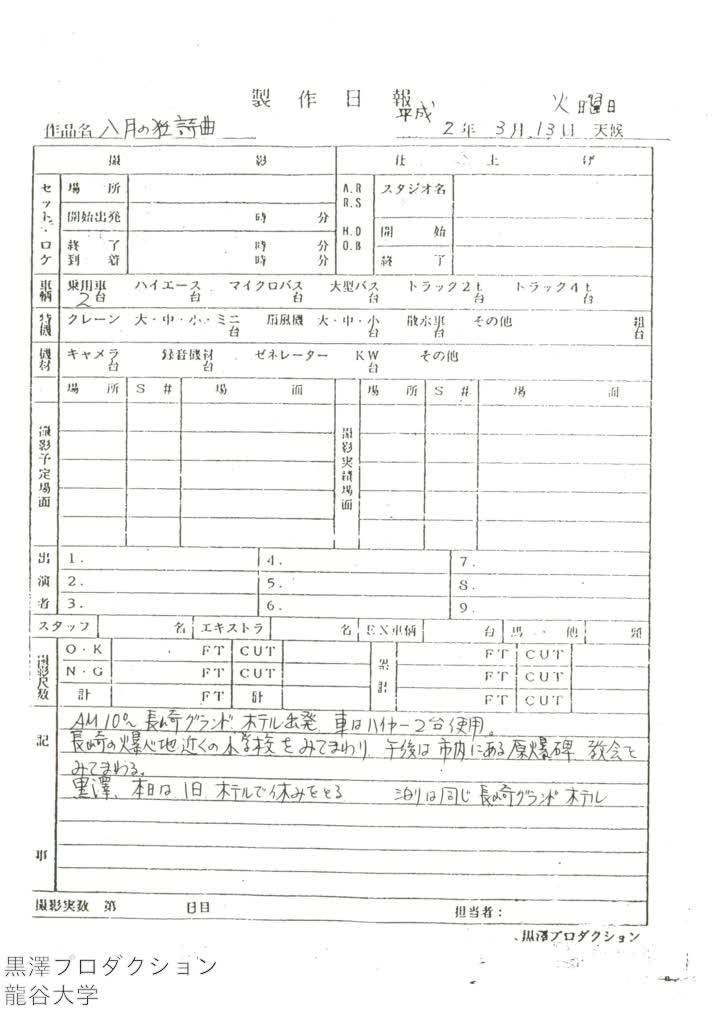 製作日報
平成
火曜日
作品名 八月の狂詩曲
2年 3月 13日 天候
撮影 仕上げ
セット・ロケ 場所 A.R R.S スタジオ名
開始出発 時 分 H.D O.B 開始
終了 時 分 終了
到着 時 分
車輌 乗用車 2台 ハイエース 台 マイクロバス 台 大型バス 台 トラック2t 台 トラック4t 台
特機 クレーン 大・中・小・ミニ 台 扇風機 大・中・小 台 散水車 台 その他 組 台
機材 キャメラ 台 録音機材 台 ゼネレーター KW 台 その他
場所 S# 場面 場所 S# 場面
撮影予定場面 撮影実績場面
出演者 1. 4. 7.
2. 5. 8.
3. 6. 9.
スタッフ 名 エキストラ 名 EX車輌 台 馬・他 頭
撮影尺数 O・K FT CUT 累計 FT CUT
N・G FT CUT FT CUT
計 FT 計 FT CUT
記事
AM10° 長崎グランドホテル出発 車はハイヤー2台使用。
長崎の爆心地近くの小学校をみてまわり 午後は市内にある原爆碑 教会を
みてまわる。
黒澤、本日は1日 ホテルで休みをとる 泊りは同じ長崎グランドホテル
撮影実数 第 日目 担当者:
黒澤プロダクション
黒澤プロダクション
龍谷大学